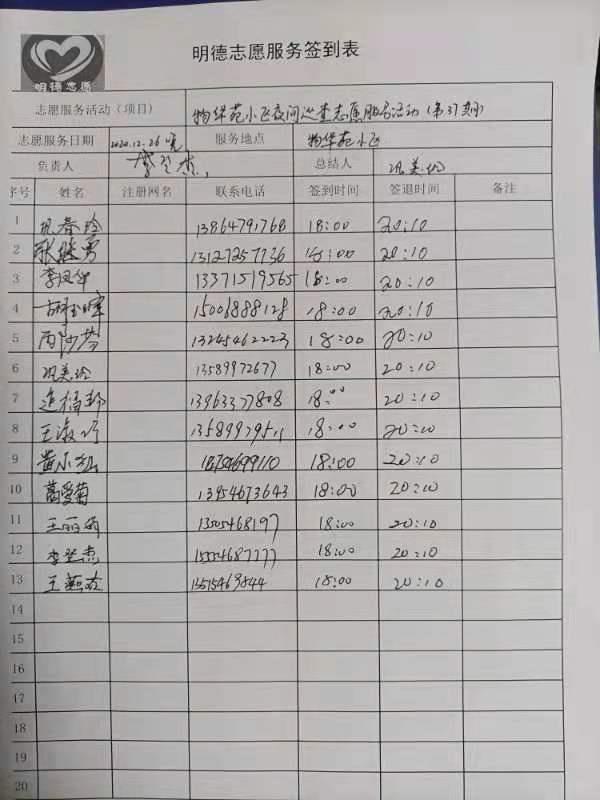 明德志愿服务签到表
明德志愿
志愿服务活动（项目） 物华苑小飞夜间巡查志愿服务活动（第37期）
志愿服务日期 2020.12.26晚 服务地点 物华苑小飞
负责人 李登杰 总结人 巩美玲
序号 姓名 注册网名 联系电话 签到时间 签退时间 备注
1 巩春玲 13864791768 18:00 20:10
2 张继勇 13127257736 18:00 20:10
3 李凤华 13371519565 18:00 20:10
4 胡玉晖 15006888128 18:00 20:10
5 13245462223 18:00 20:10
6 巩美玲 13589972677 18:00 20:10
7 13963377808 18:00 20:10
8 王淑巧 18:00 20:10
9 黄小红 18754699110 18:00 20:10
10 葛爱菊 13954673643 18:00 20:10
11 王丽娟 13505468197 18:00 20:10
12 李登杰 15554687777 18:00 20:10
13 王燕玲 13515469844 18:00 20:10
14
15
16
17
18
19
20